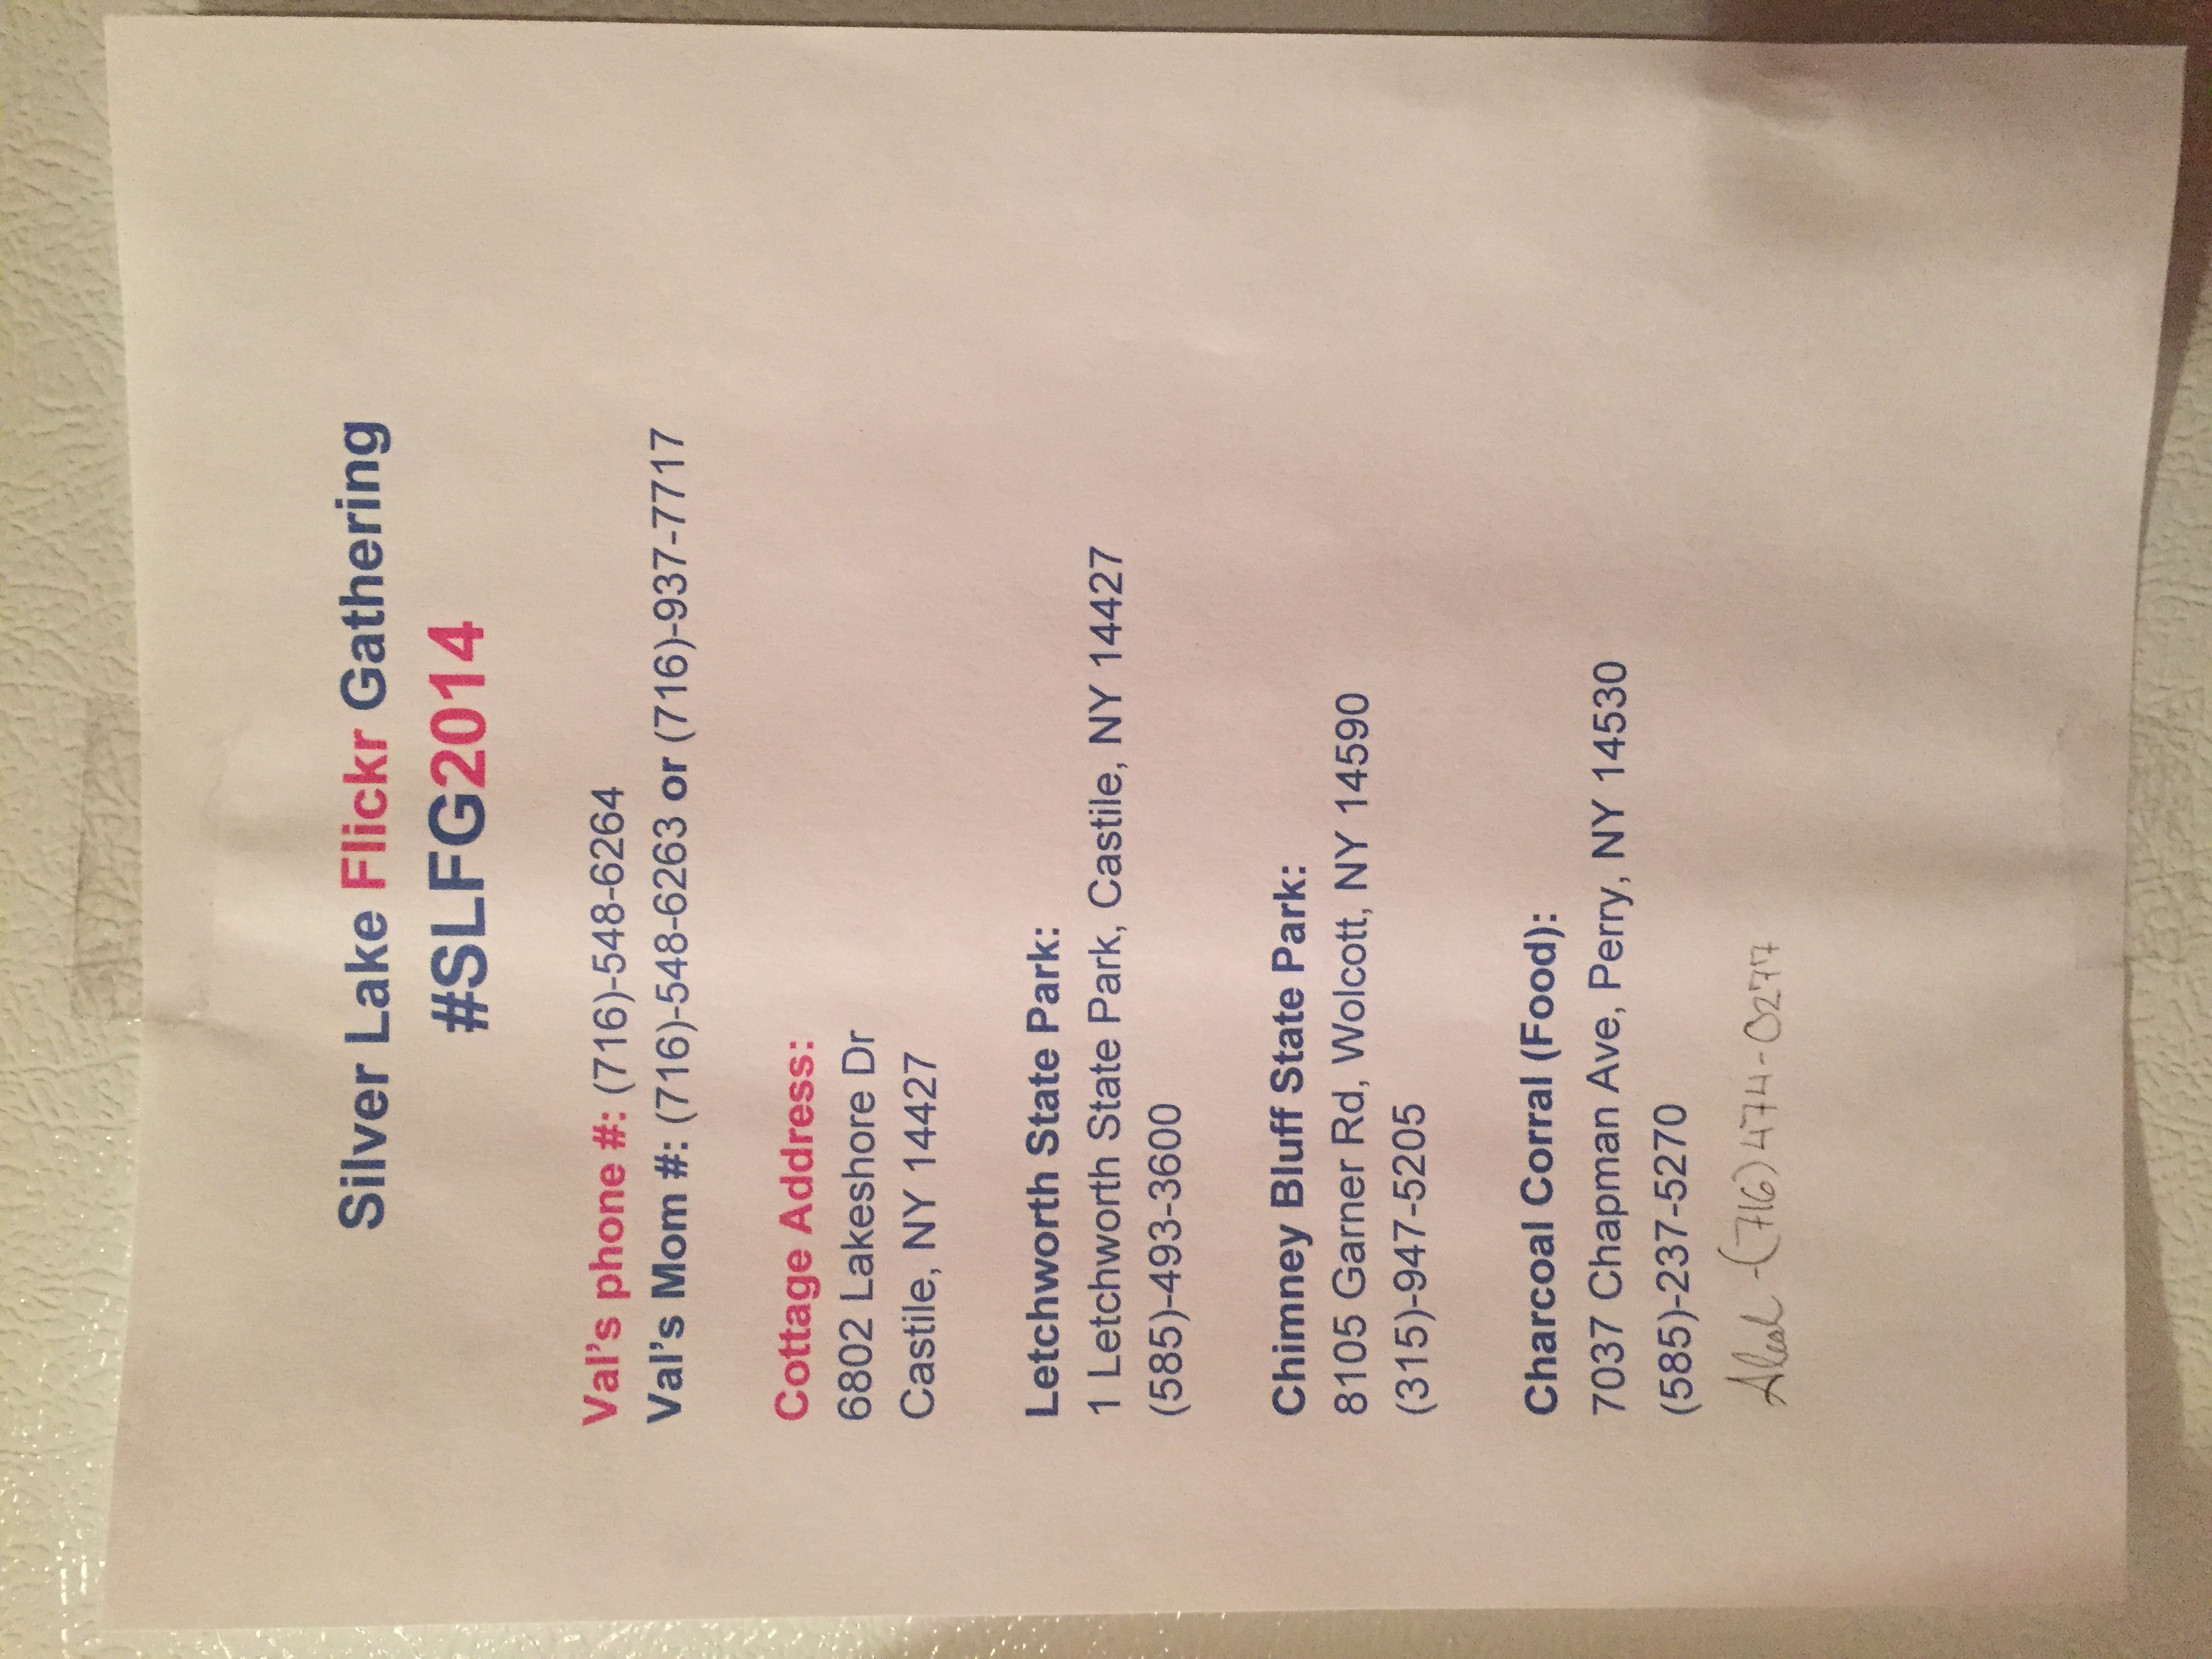 Silver Lake Flickr Gathering
#SLFG2014
Val's phone #: (716)-548-6264
Val's Mom #: (716)-548-6263 or (716)-937-7717
Cottage Address:
6802 Lakeshore Dr
Castile, NY 14427
Letchworth State Park:
1 Letchworth State Park, Castile, NY 14427
(585)-493-3600
Chimney Bluff State Park:
8105 Garner Rd, Wolcott, NY 14590
(315)-947-5205
Charcoal Corral (Food):
7037 Chapman Ave, Perry, NY 14530
(585)-237-5270
-(716)474-0277